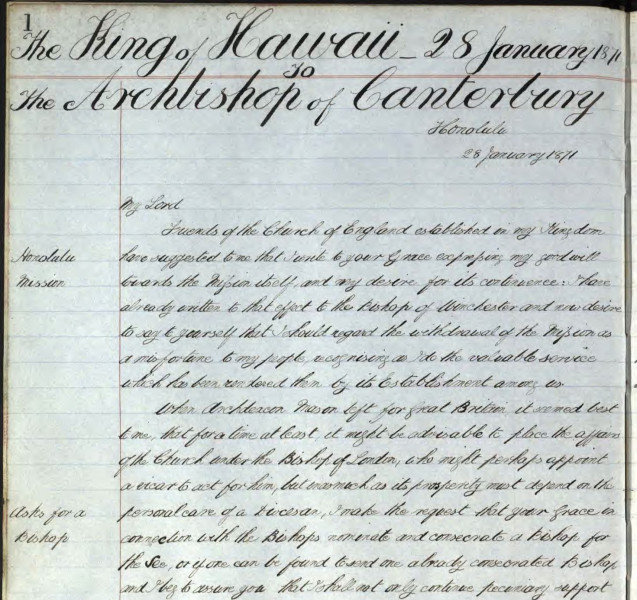 1
The King of Hawaii - 28 January 1871
To
The Archbishop of Canterbury
Honolulu
28 January 1871
My Lord
Friends of the Church of England established in my Kingdom
Honolulu have suggested to me that I write to your Grace expressing my good will
Mission towards the Mission itself, and my desire for its continuence: I have
already written to that effect to the Bishop of Winchester and now desire
to say to yourself that I should regard the withdrawal of the Mission as
a misfortune to my people, recognising as I do the valuable service
which has been rendered them by its Establishment among us
When Archdeacon Mason left for Great Britain it seemed best
to me, that for a time at least, it might be advisable to place the affairs
of the Church under the Bishop of London, who might perhaps appoint
a vicar to act for him, but inasmuch as its prosperity must depend on the
Asks for a personal care of a Diocesan, I make the request that your Grace in
Bishop connection with the Bishops nominate and consecrate a Bishop for
the See, or if one can be found to send me already consecrated Bishop
and I beg to assure you that I shall not only continue pecuniary support